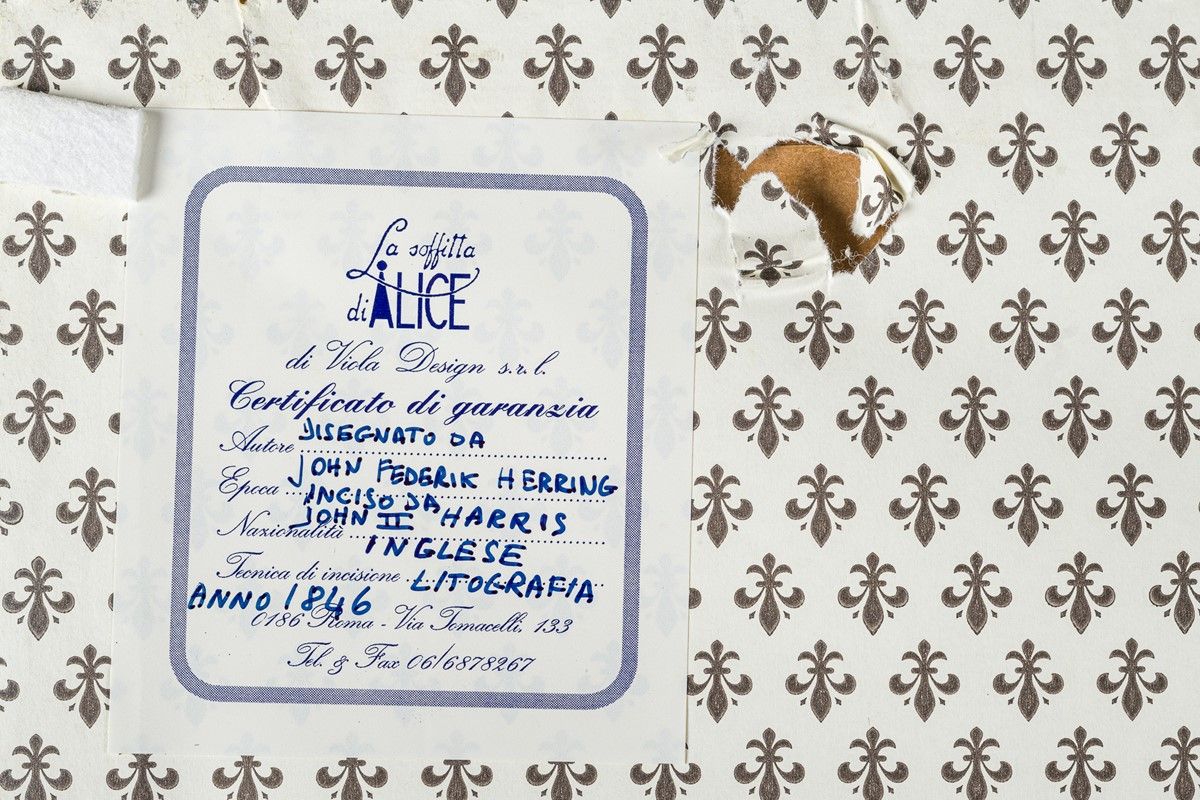 La soffitta
di ALICE
di Viola Design s.r.l.
Certificato di garanzia
Autore DISEGNATO DA
JOHN FEDERIK HERRING
Epoca
INCISO DA
JOHN II HARRIS
Nazionalità
INGLESE
Tecnica di incisione LITOGRAFIA
ANNO 1846
0186 Roma - Via Tomacelli, 133
Tel. & Fax 06/6878267